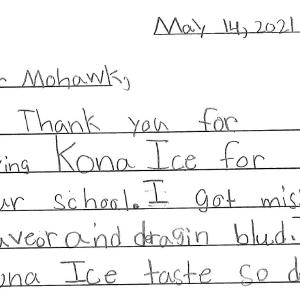 May 14, 2021
r Mohawk,
Thank you for
ing Kona Ice for
ur school. I got mis
aveor and dragin blud. I
ona Ice taste so d